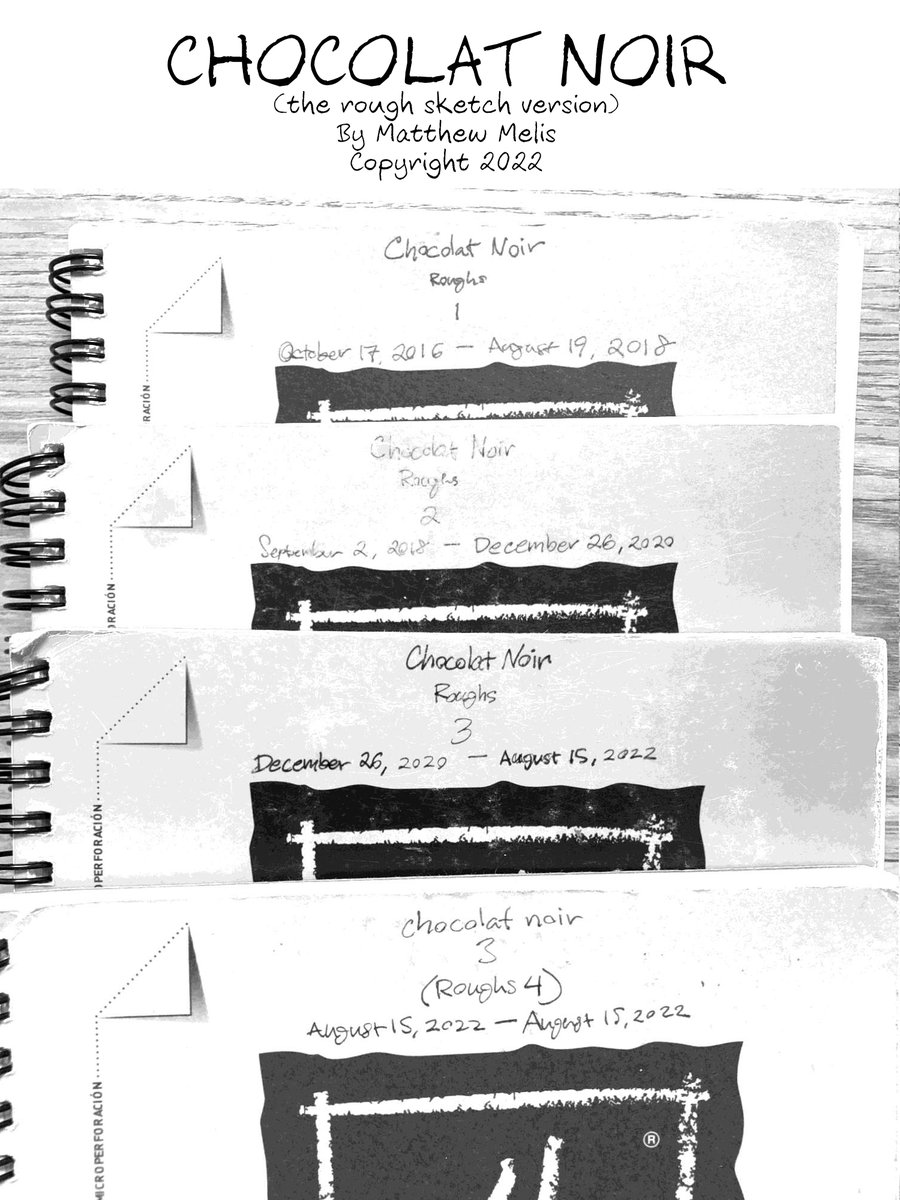 CHOCOLAT NOIR
(the rough sketch version)
By Matthew Melis
Copyright 2022
Chocolat Noir
Roughs
1
October 17, 2016 — August 19, 2018
RACIÓN
Chocolat Noir
Roughs
2
September 2, 2018 — December 26, 2020
RACIÓN
Chocolat Noir
Roughs
3
December 26, 2020 — August 15, 2022
OPERFORACIÓN
chocolat noir
3
(Roughs 4)
August 15, 2022 — August 15, 2022
MICROPERFORACIÓN
®